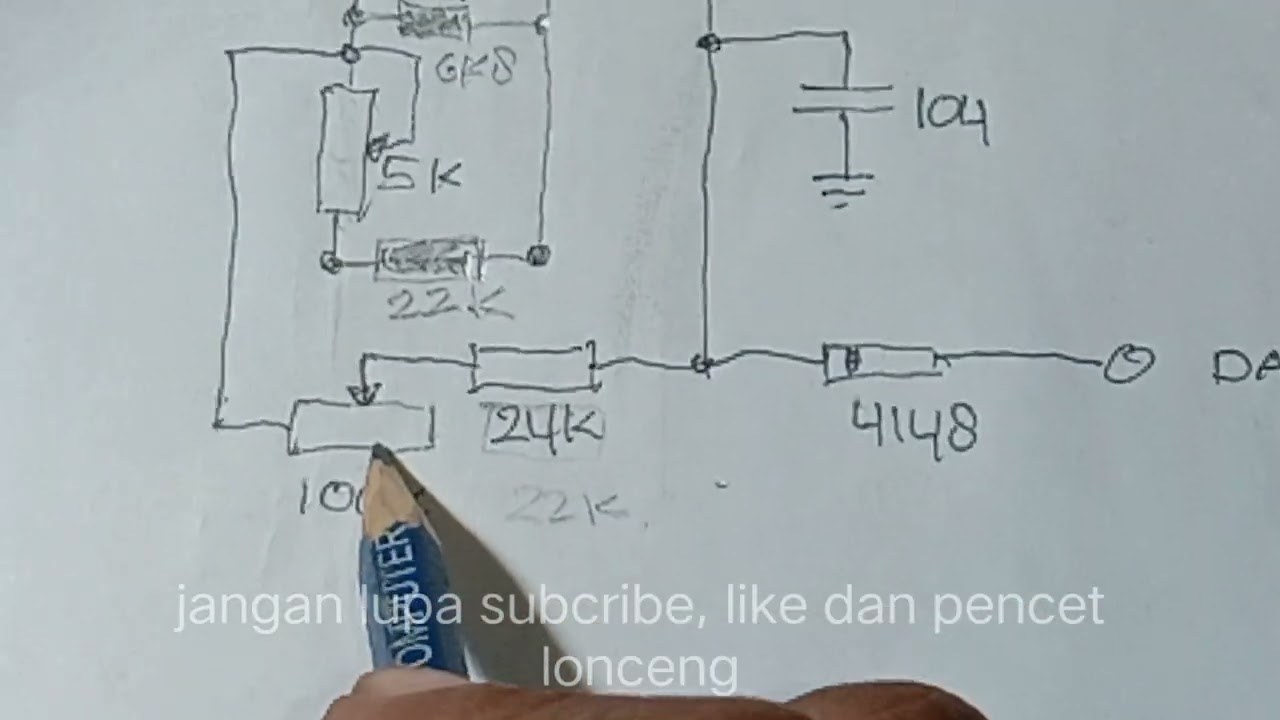 6K8
104
5K
22K
DA
24K
4148
22K
COMPUTER
jangan lupa subcribe, like dan pencet
lonceng